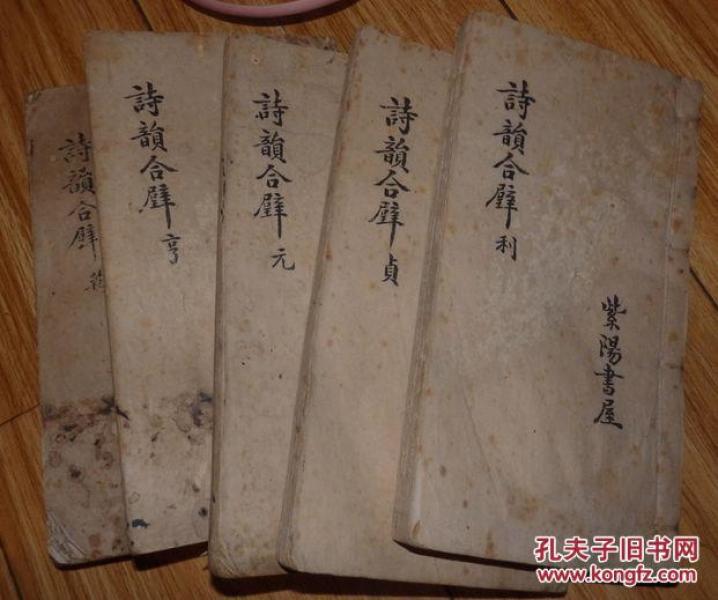 詩韻合璧
詩韻合璧 亨
詩韻合璧 元
詩韻合璧 貞
詩韻合璧 利
紫陽書屋
孔夫子旧书网
www.kongfz.com